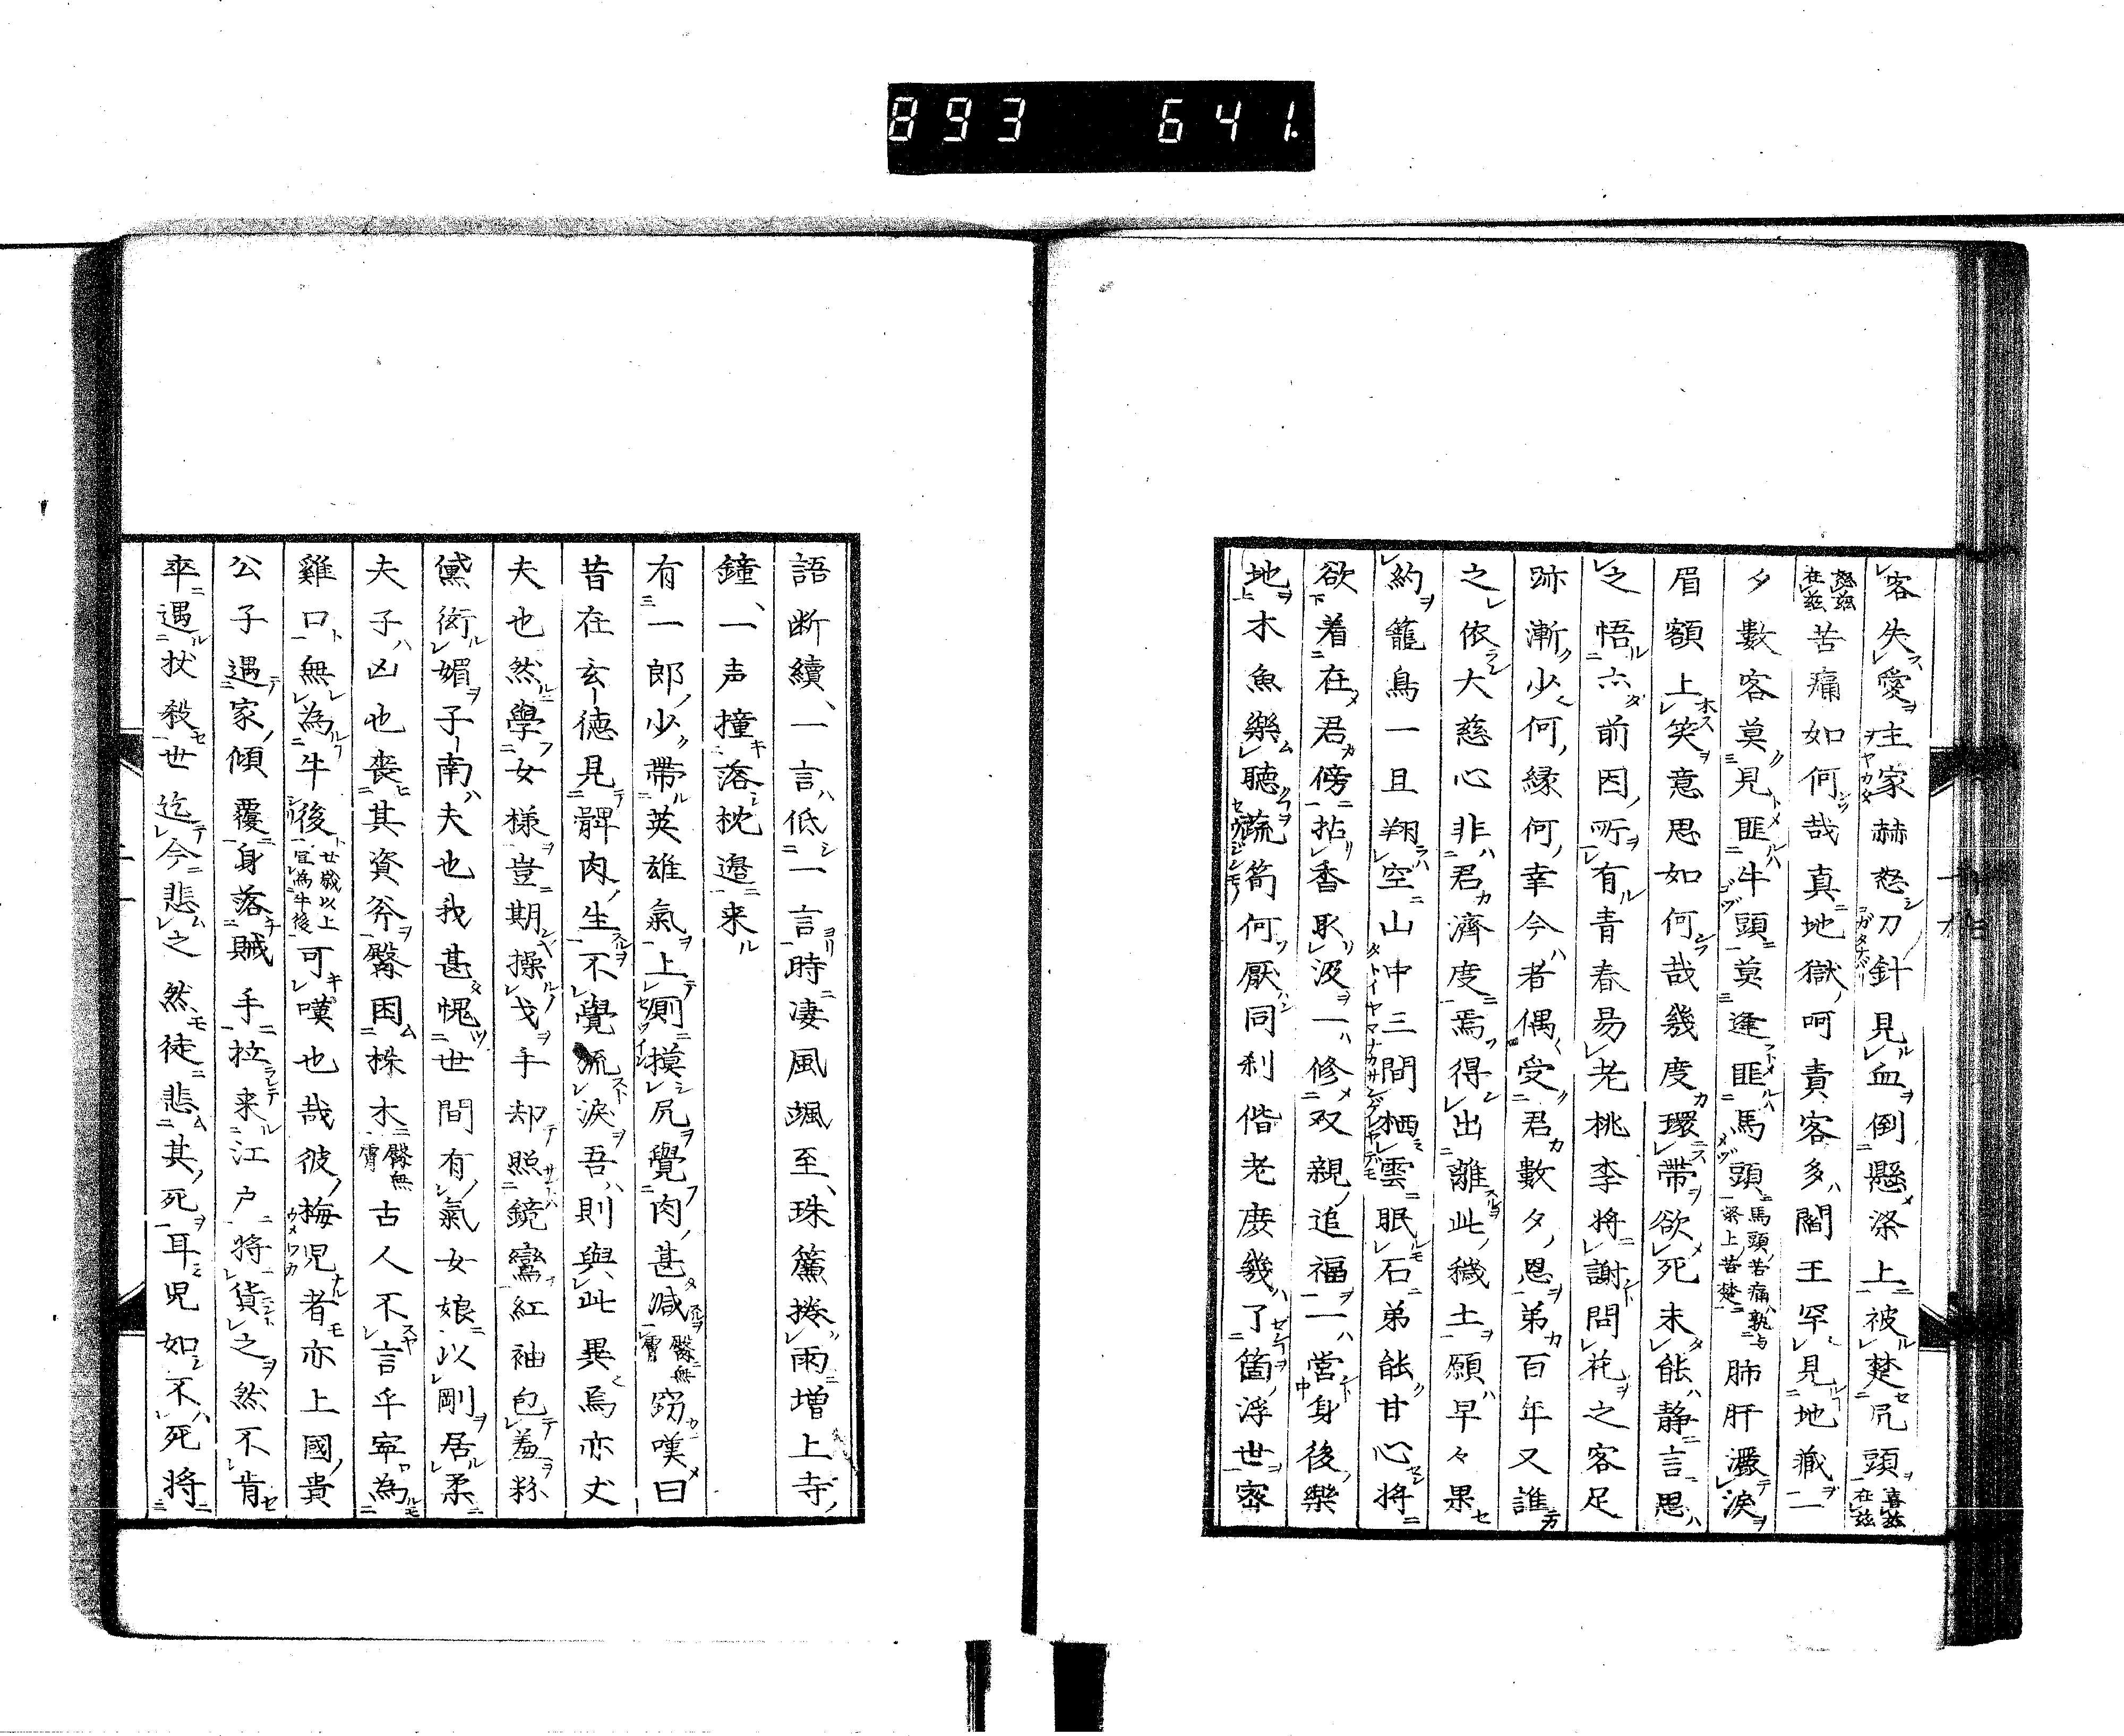 893 641.
客失愛主家赫怒刀針見血倒懸梁上被楚尻頭喜茲在茲
怒茲在茲苦痛如何哉真地獄呵責客多閻王罕見地藏一
夕數客莫見匪牛頭莫逢匪馬頭馬頭苦痛孰与梁上苦楚肺肝濺淚
眉額上笑意思如何哉幾度環帶欲死未能静言思
之悟六前因所有青春易老桃李将謝問花之客足
跡漸少何縁何幸今者偶受君數夕恩弟百年又誰
之依大慈心非君濟度焉得出離此穢土願早々果
約籠鳥一旦翔空山中三間栖雲眠石弟能甘心将
欲着在君傍拈香取汲一修双親追福一當身後樂
地木魚樂聽蔬筍何厭同刹偕老庶幾了箇浮世密
語断續一言低一言時凄風颯至珠簾捲雨增上寺
鐘一声撞落枕邊来
有一郎少帶英雄氣上厠摸尻覺肉甚減臀無膚窃嘆曰
昔在玄德見髀肉生不覺流淚吾則與此異焉亦丈
夫也然學女様豈期操戈手却照鏡鸞紅袖包羞粉
黛衒媚子南夫也我甚愧世間有氣女娘以剛居柔
夫子凶也喪其資斧臀困株木臀無膚古人不言乎寧為
雞口無為牛後廿歲以上宜為牛後可嘆也哉彼梅児者亦上國貴
公子遇家傾覆身落賊手拉来江戸将貨之然不肯
卒遇扙殺世迄今悲之然徒悲其死耳児如不死将